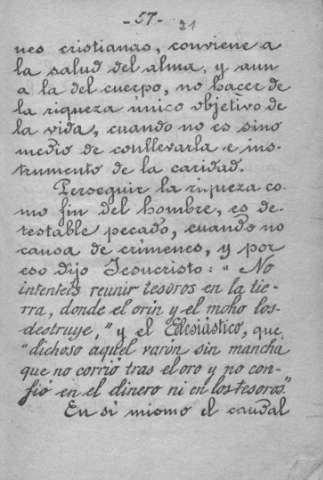 -57-
21
nes cristianas, conviene a
la salud del alma, y aun
a la del cuerpo, no hacer de
la riqueza único objetivo de
la vida, cuando no es sino
medio de conllevarla e ins-
trumento de la caridad.
Perseguir la riqueza co-
mo fin del hombre, es de-
testable pecado, cuando no
causa de crímenes, y por
eso dijo Jesucristo: "No
intenteis reunir tesoros en la tie-
rra, donde el orin y el moho los
destruye," y el Eclesiástico, que
"dichoso aquel varón sin mancha
que no corrió tras el oro y no con-
fió en el dinero ni en los tesoros."
En si mismo el caudal